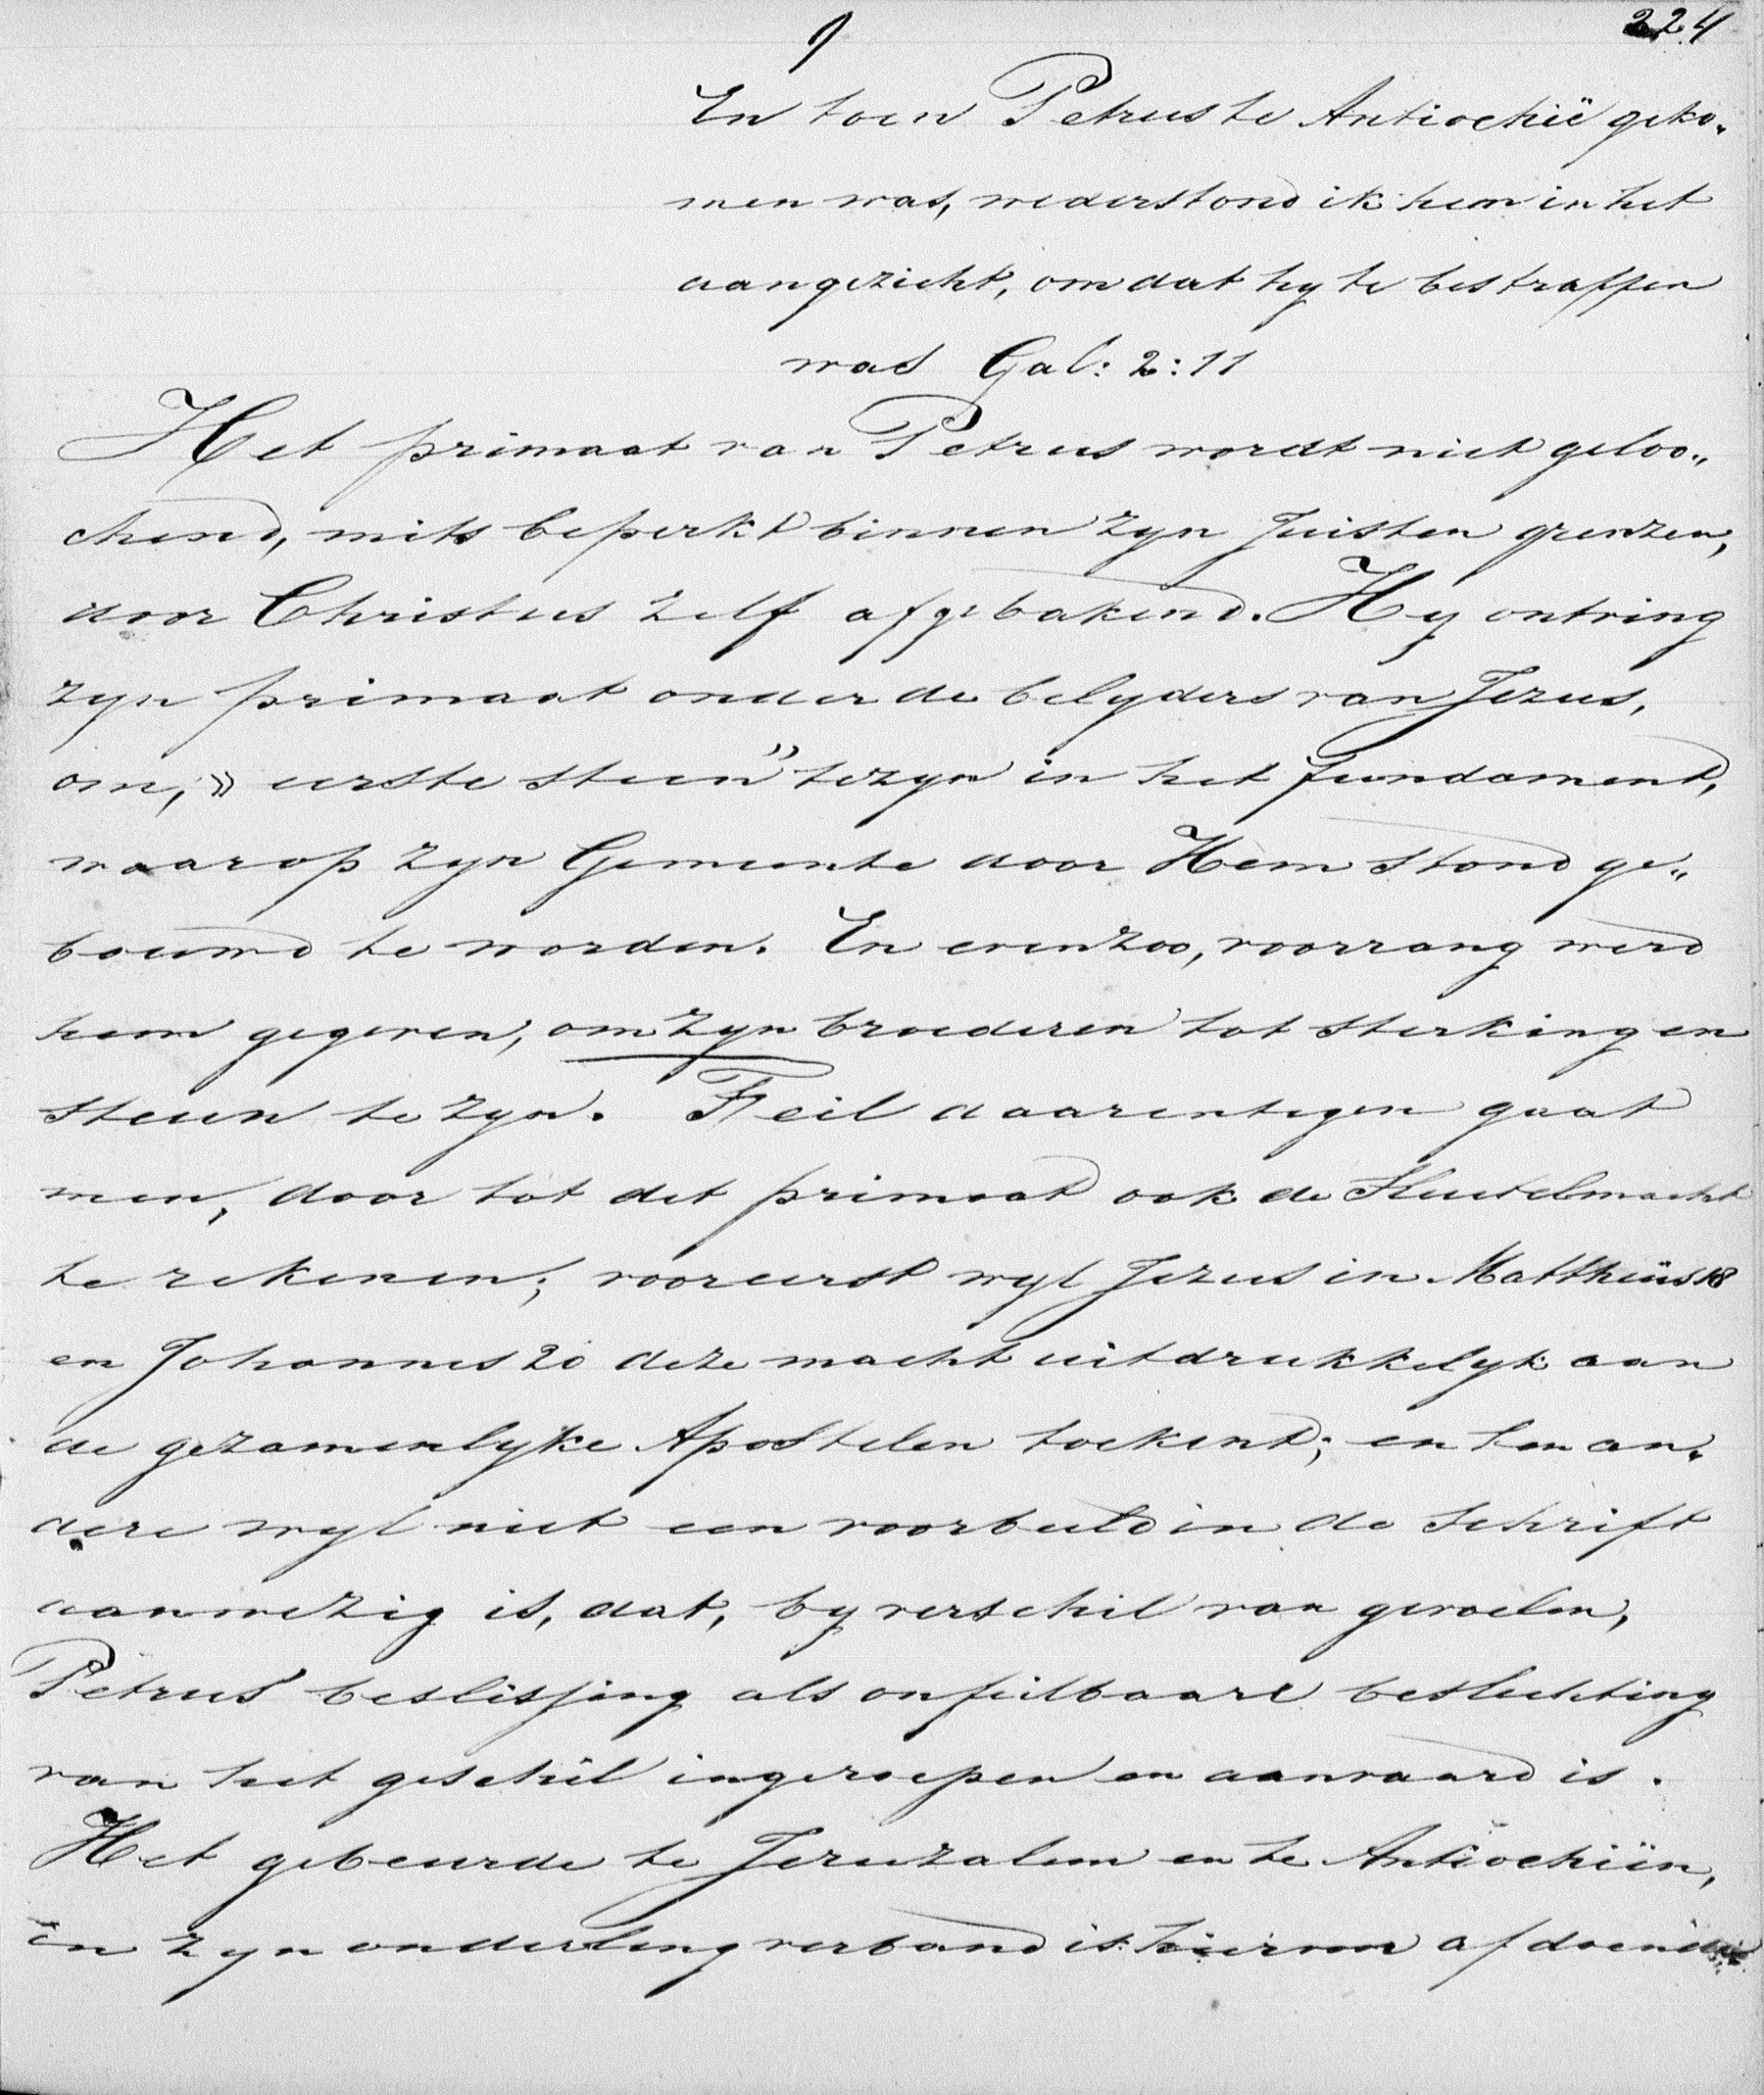 224
En toen Petrus te Antiochië geko„
men was, wederstond ik hem in het
aangezicht, omdat hy te bestraffen
was Gal: 2:11
Het primaat van Petrus wordt niet geloo„
chend, mits beperkt binnen zyn juisten grenzen,
door Christus zelf afgebakend. Hy ontving
zyn primaat onder de belyders van Jezus,
om, » eerste steen” te zyn in het fundament,
waarop zyn Gemeente door Hem stond ge„
bouwd te worden. En evenzoo, voorrang werd
hem gegeven, om zyn broederen tot sterking en
steun te zyn. Feil daarentegen gaat
men, door tot dit primaat ook de Sleutelmacht
te rekenen; vooreerst wyl Jezus in Mattheüs 18
en Johannes 20 deze macht uitdrukkelyk aan
de gezamenlyke Apostelen toekent; en ten an„
dere wyl niet een voorbeeld in de Schrift
aanwezig is, dat, by verschil van gevoelen,
Petrus beslissing als onfeilbaare beslechting
van het geschil ingeroepen en aanvaard is.
Het gebeurde te Jeruzalem en te Antiochiën,
in zyn onderling verband is hiervoor afdoende